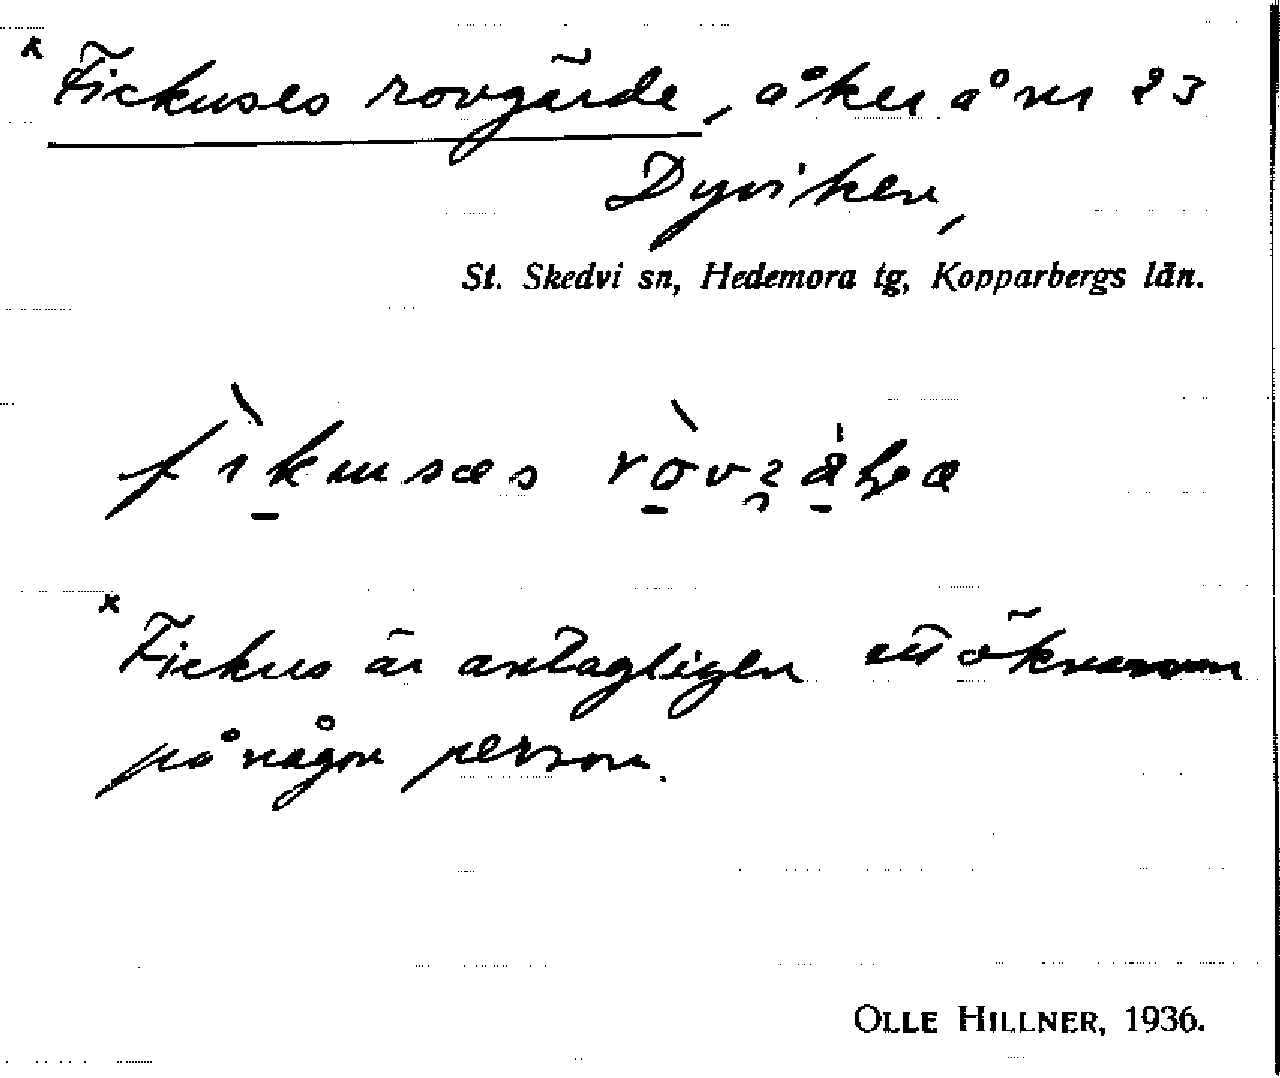 x Fickuses rovgärde, åker å nr 23
Dyviken,
St. Skedvi sn, Hedemora tg, Kopparbergs län.
x Fickus är antagligen ett öknamn
på någon person.
OLLE HILLNER, 1936.